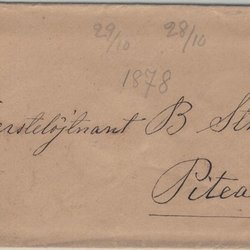 29/10 28/10
1878
erstelöjtnant B St
Piteå